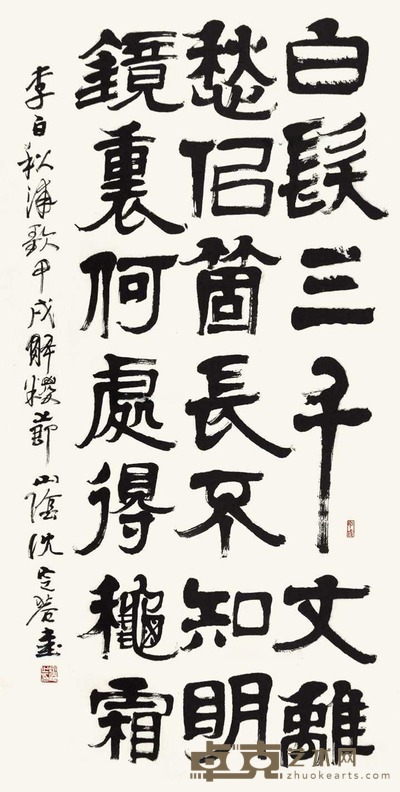 白髮三千丈離
愁佀箇長不知明
鏡裏何處得龝霜
李白秋浦歌甲戌解糉節山陰沈定菴書
卓克艺术网
zhuokearts.com